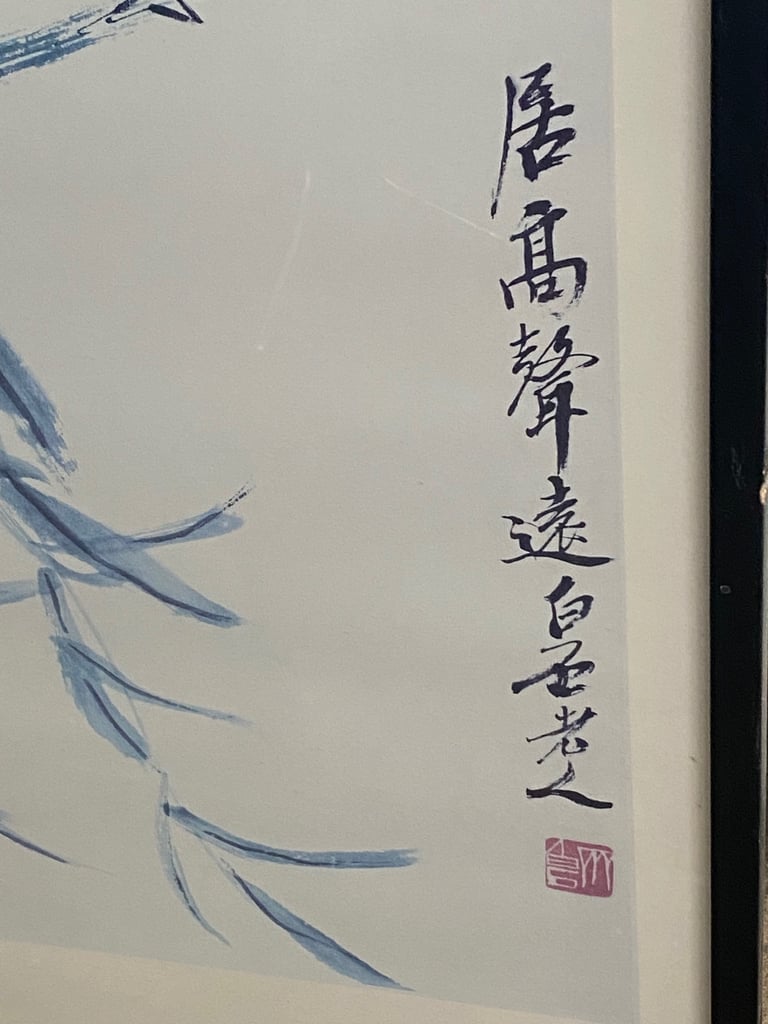 居高聲遠白老人